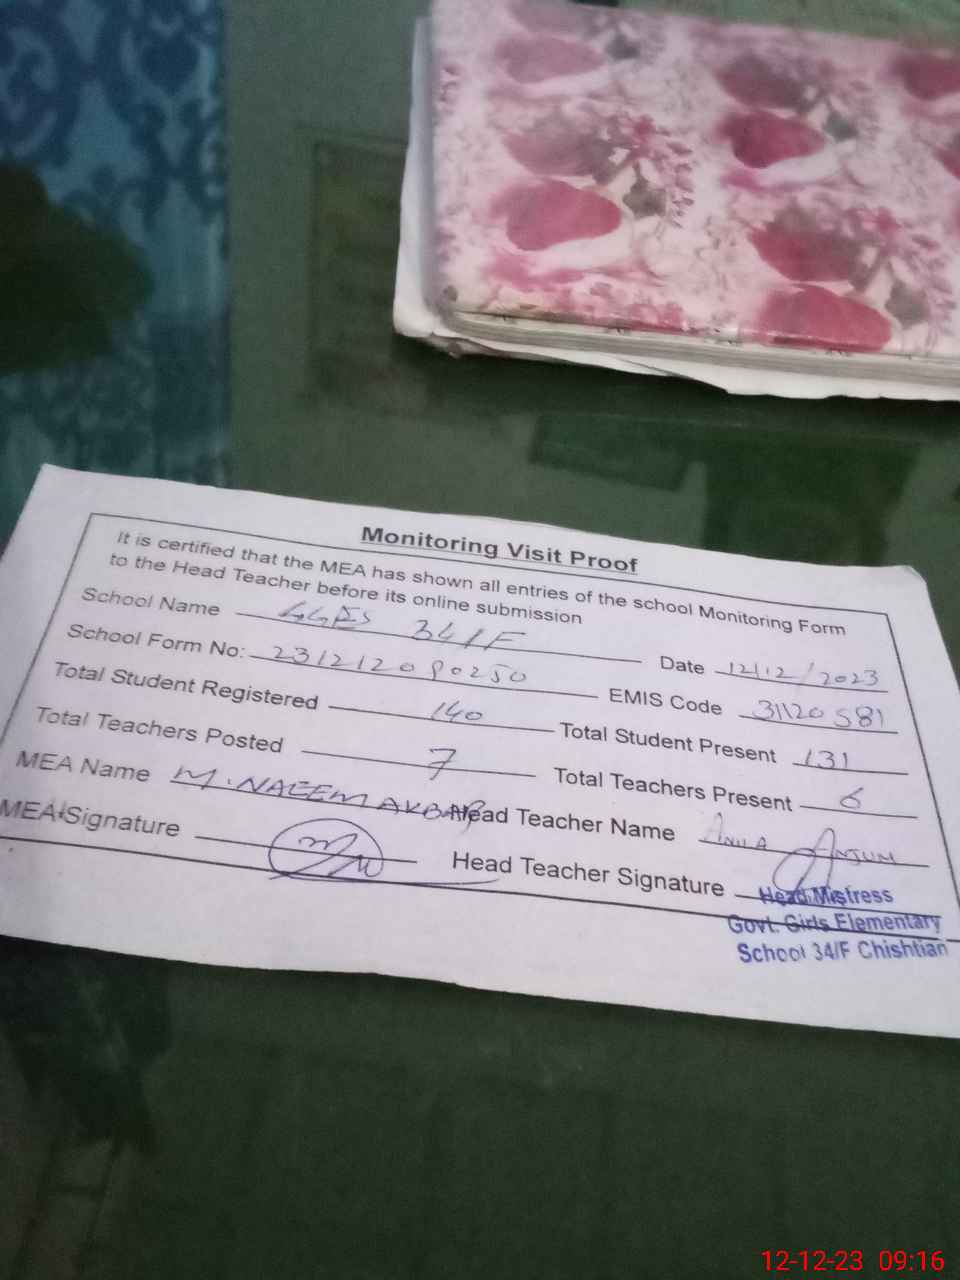 Monitoring Visit Proof
It is certified that the MEA has shown all entries of the school Monitoring Form
to the Head Teacher before its online submission
School Name GGES 34/F Date 12/12/2023
School Form No: 231212090250 EMIS Code 31120581
Total Student Registered 140 Total Student Present 131
Total Teachers Posted 7 Total Teachers Present 6
MEA Name M. NAEEM AKBAR Head Teacher Name ANILA ANJUM
MEA Signature Head Teacher Signature
Head Mistress
Govt. Girls Elementary
School 34/F Chishtian
12-12-23 09:16